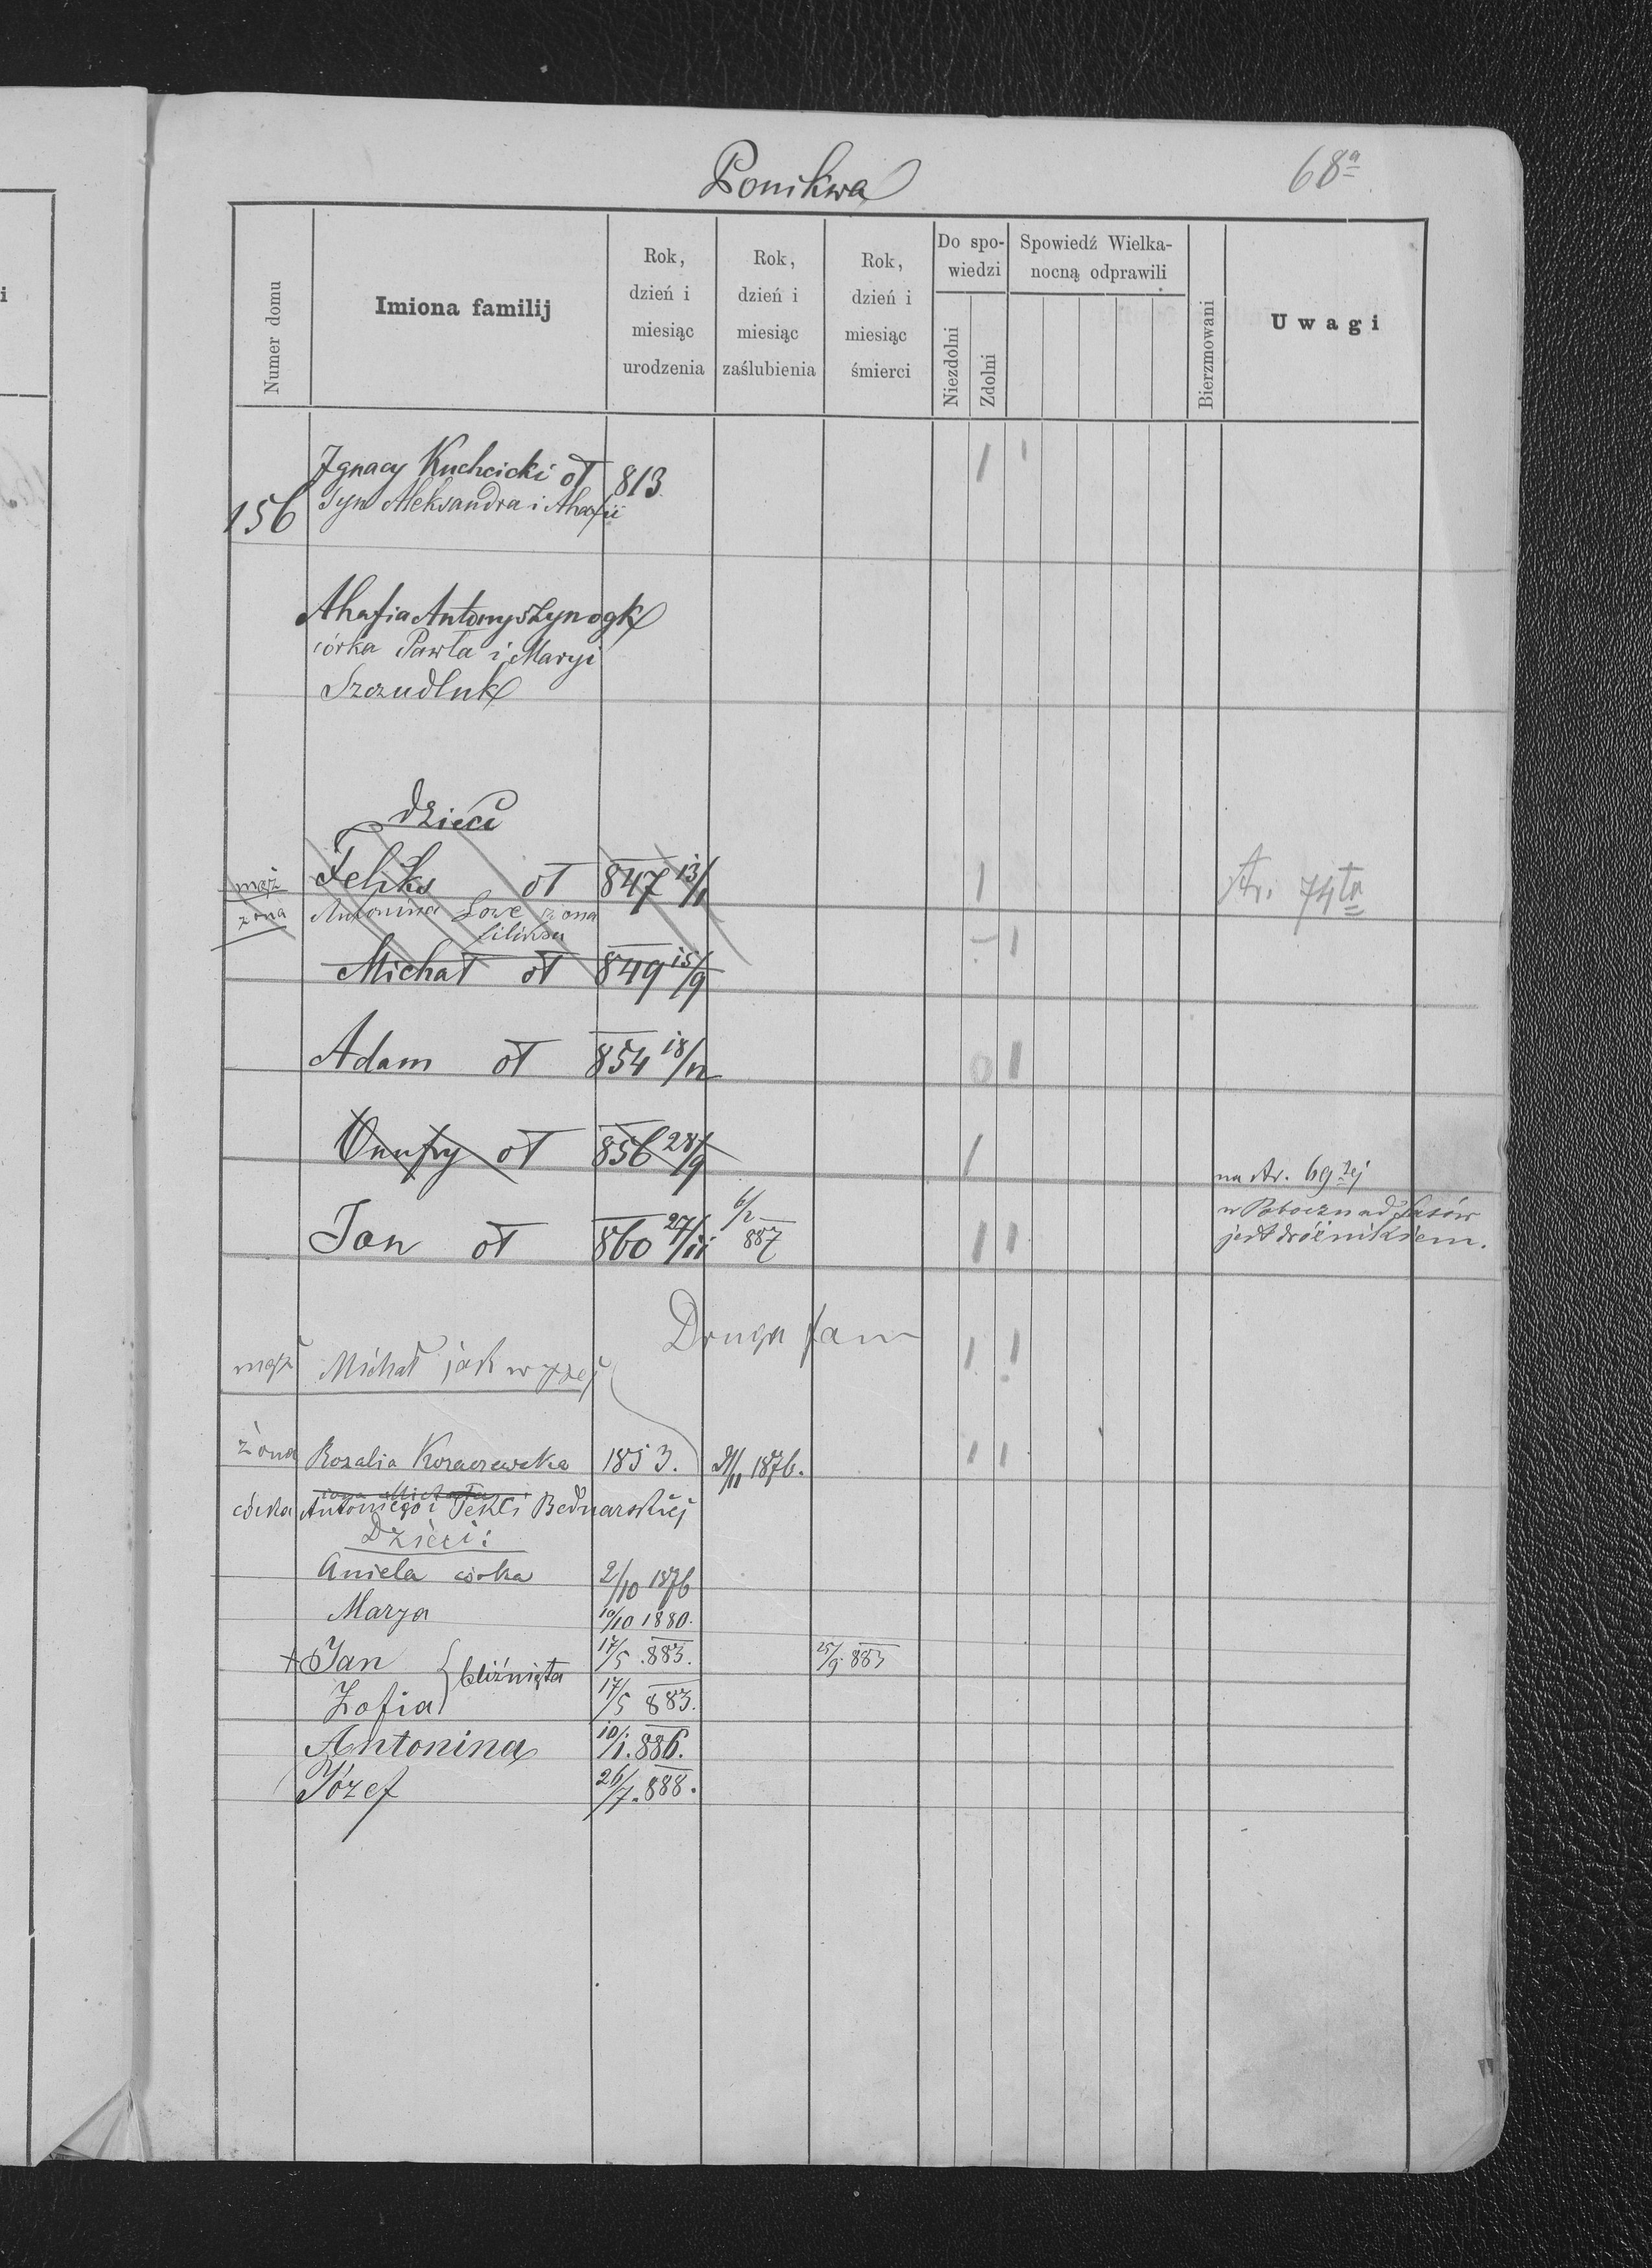 Ponikwa
68a
Numer domu
Imiona familij
Rok, dzień i miesiąc urodzenia
Rok, dzień i miesiąc zaślubienia
Rok, dzień i miesiąc śmierci
Do spowiedzi
Niezdolni
Zdolni
Spowiedź Wielkanocną odprawili
Bierzmowani
Uwagi
i
Ignacy Kuchcicki ot 813
156 syn Aleksandra i Ahafii
Ahafia Antonyszyn ogk
córka Pawła i Maryi
Szczudluk
Dzieci
mąż Feliks ot 847 13/1 Str. 74ta
żona Antonina żona
Michał ot 849 15/9
Adam ot 854 18/12
Onufry ot 856 28/9 na str. 69tej
Jan ot 860 27/11 6/2 887 jest dróżnikiem.
Druga fam
mąż Michał jak wyżej
żona Rozalia 1853. 21/11 1876.
córka Antoniego i Tekli Bednarskiej
Dzieci:
Aniela córka 2/10 1876
Marya 10/10 1880.
+ Jan bliźnięta 17/5 883. 25/9 883
Zofia 17/5 883.
Antonina 10/1. 886.
Józef 26/7. 888.